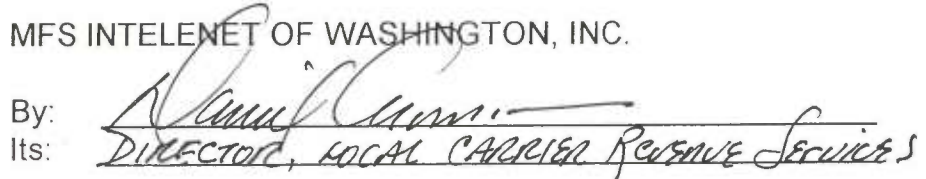 MFS INTELENET OF WASHINGTON, INC.
By:
Its: DIRECTOR, LOCAL CARRIER REVENUE SERVICES